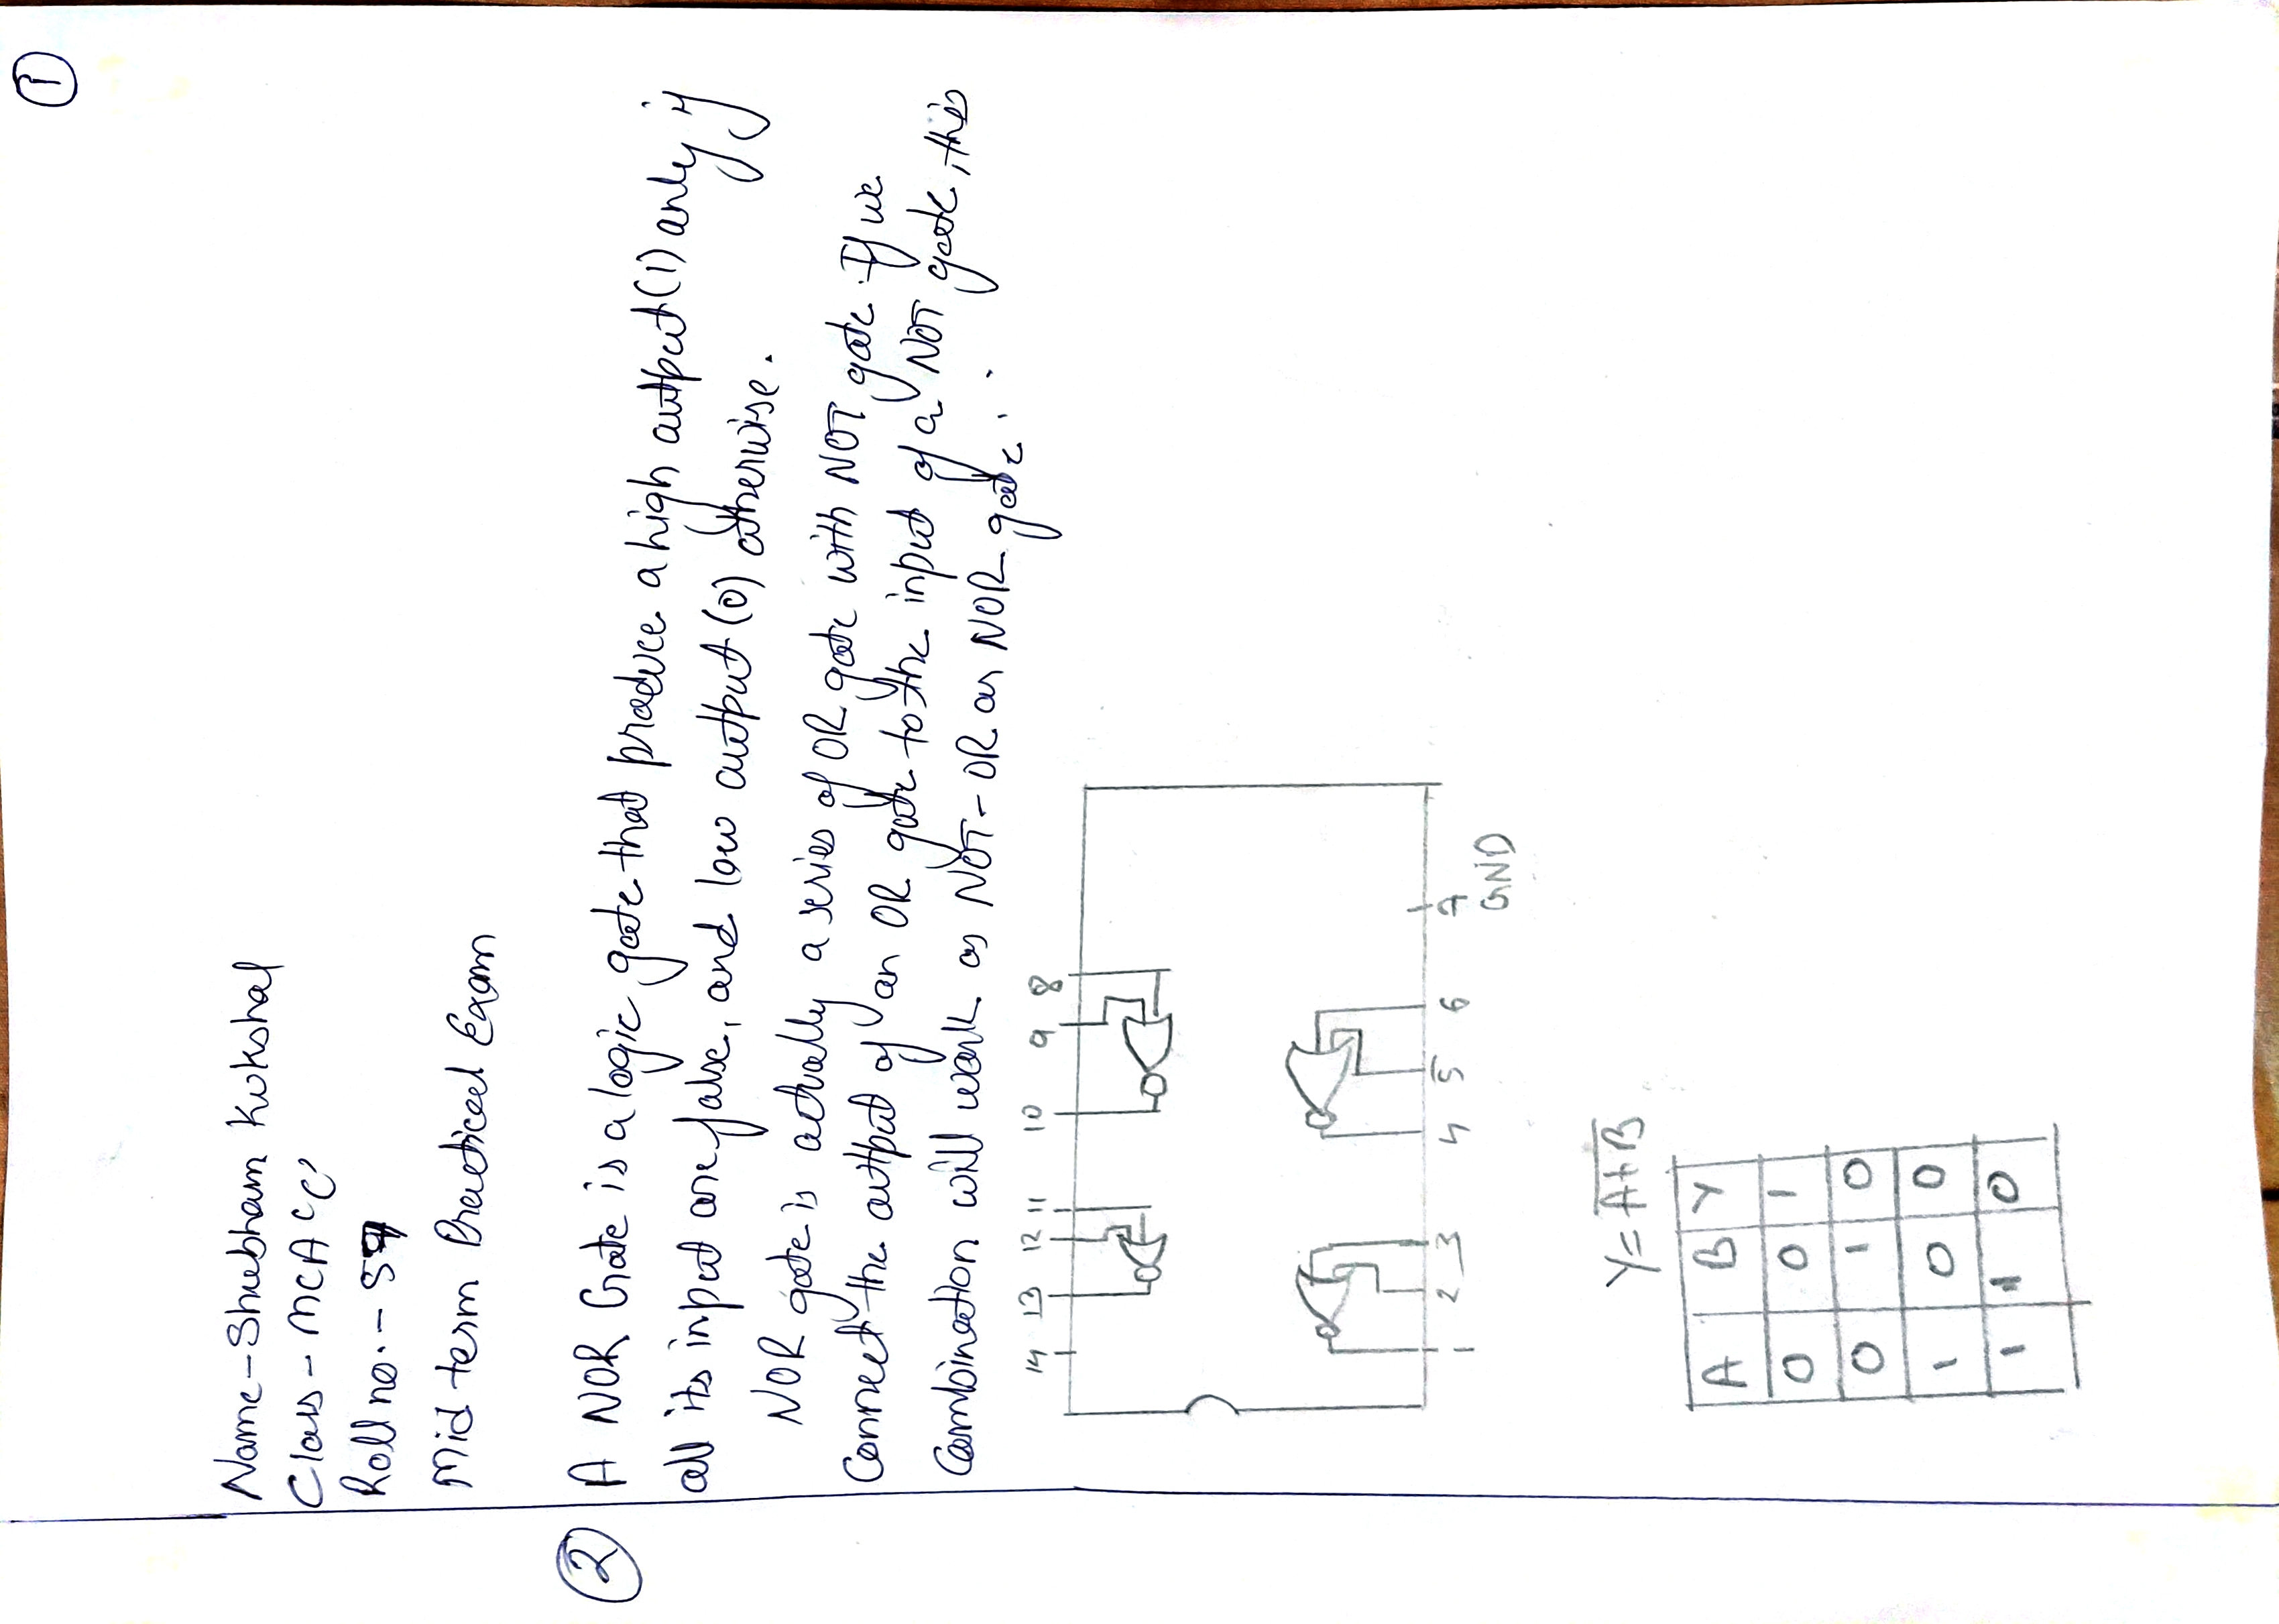 1
Name - Shubham Kukshal
Class - MCA 'C'
Roll no. - 59
Mid term Practical Exam
2
A NOR Gate is a logic gate that produce a high output (1) only if
all its input are false, and low output (0) otherwise.
NOR gate is actually a series of OR gate with NOT gate. If we
connect the output of an OR gate to the input of a NOT gate, this
combination will work as NOT-OR or NOR gate.
14 13 12 11 10 9 8
1 2 3 4 5 6 7
GND
Y = \overline{A+B}
A B Y
0 0 1
0 1 0
1 0 0
1 1 0